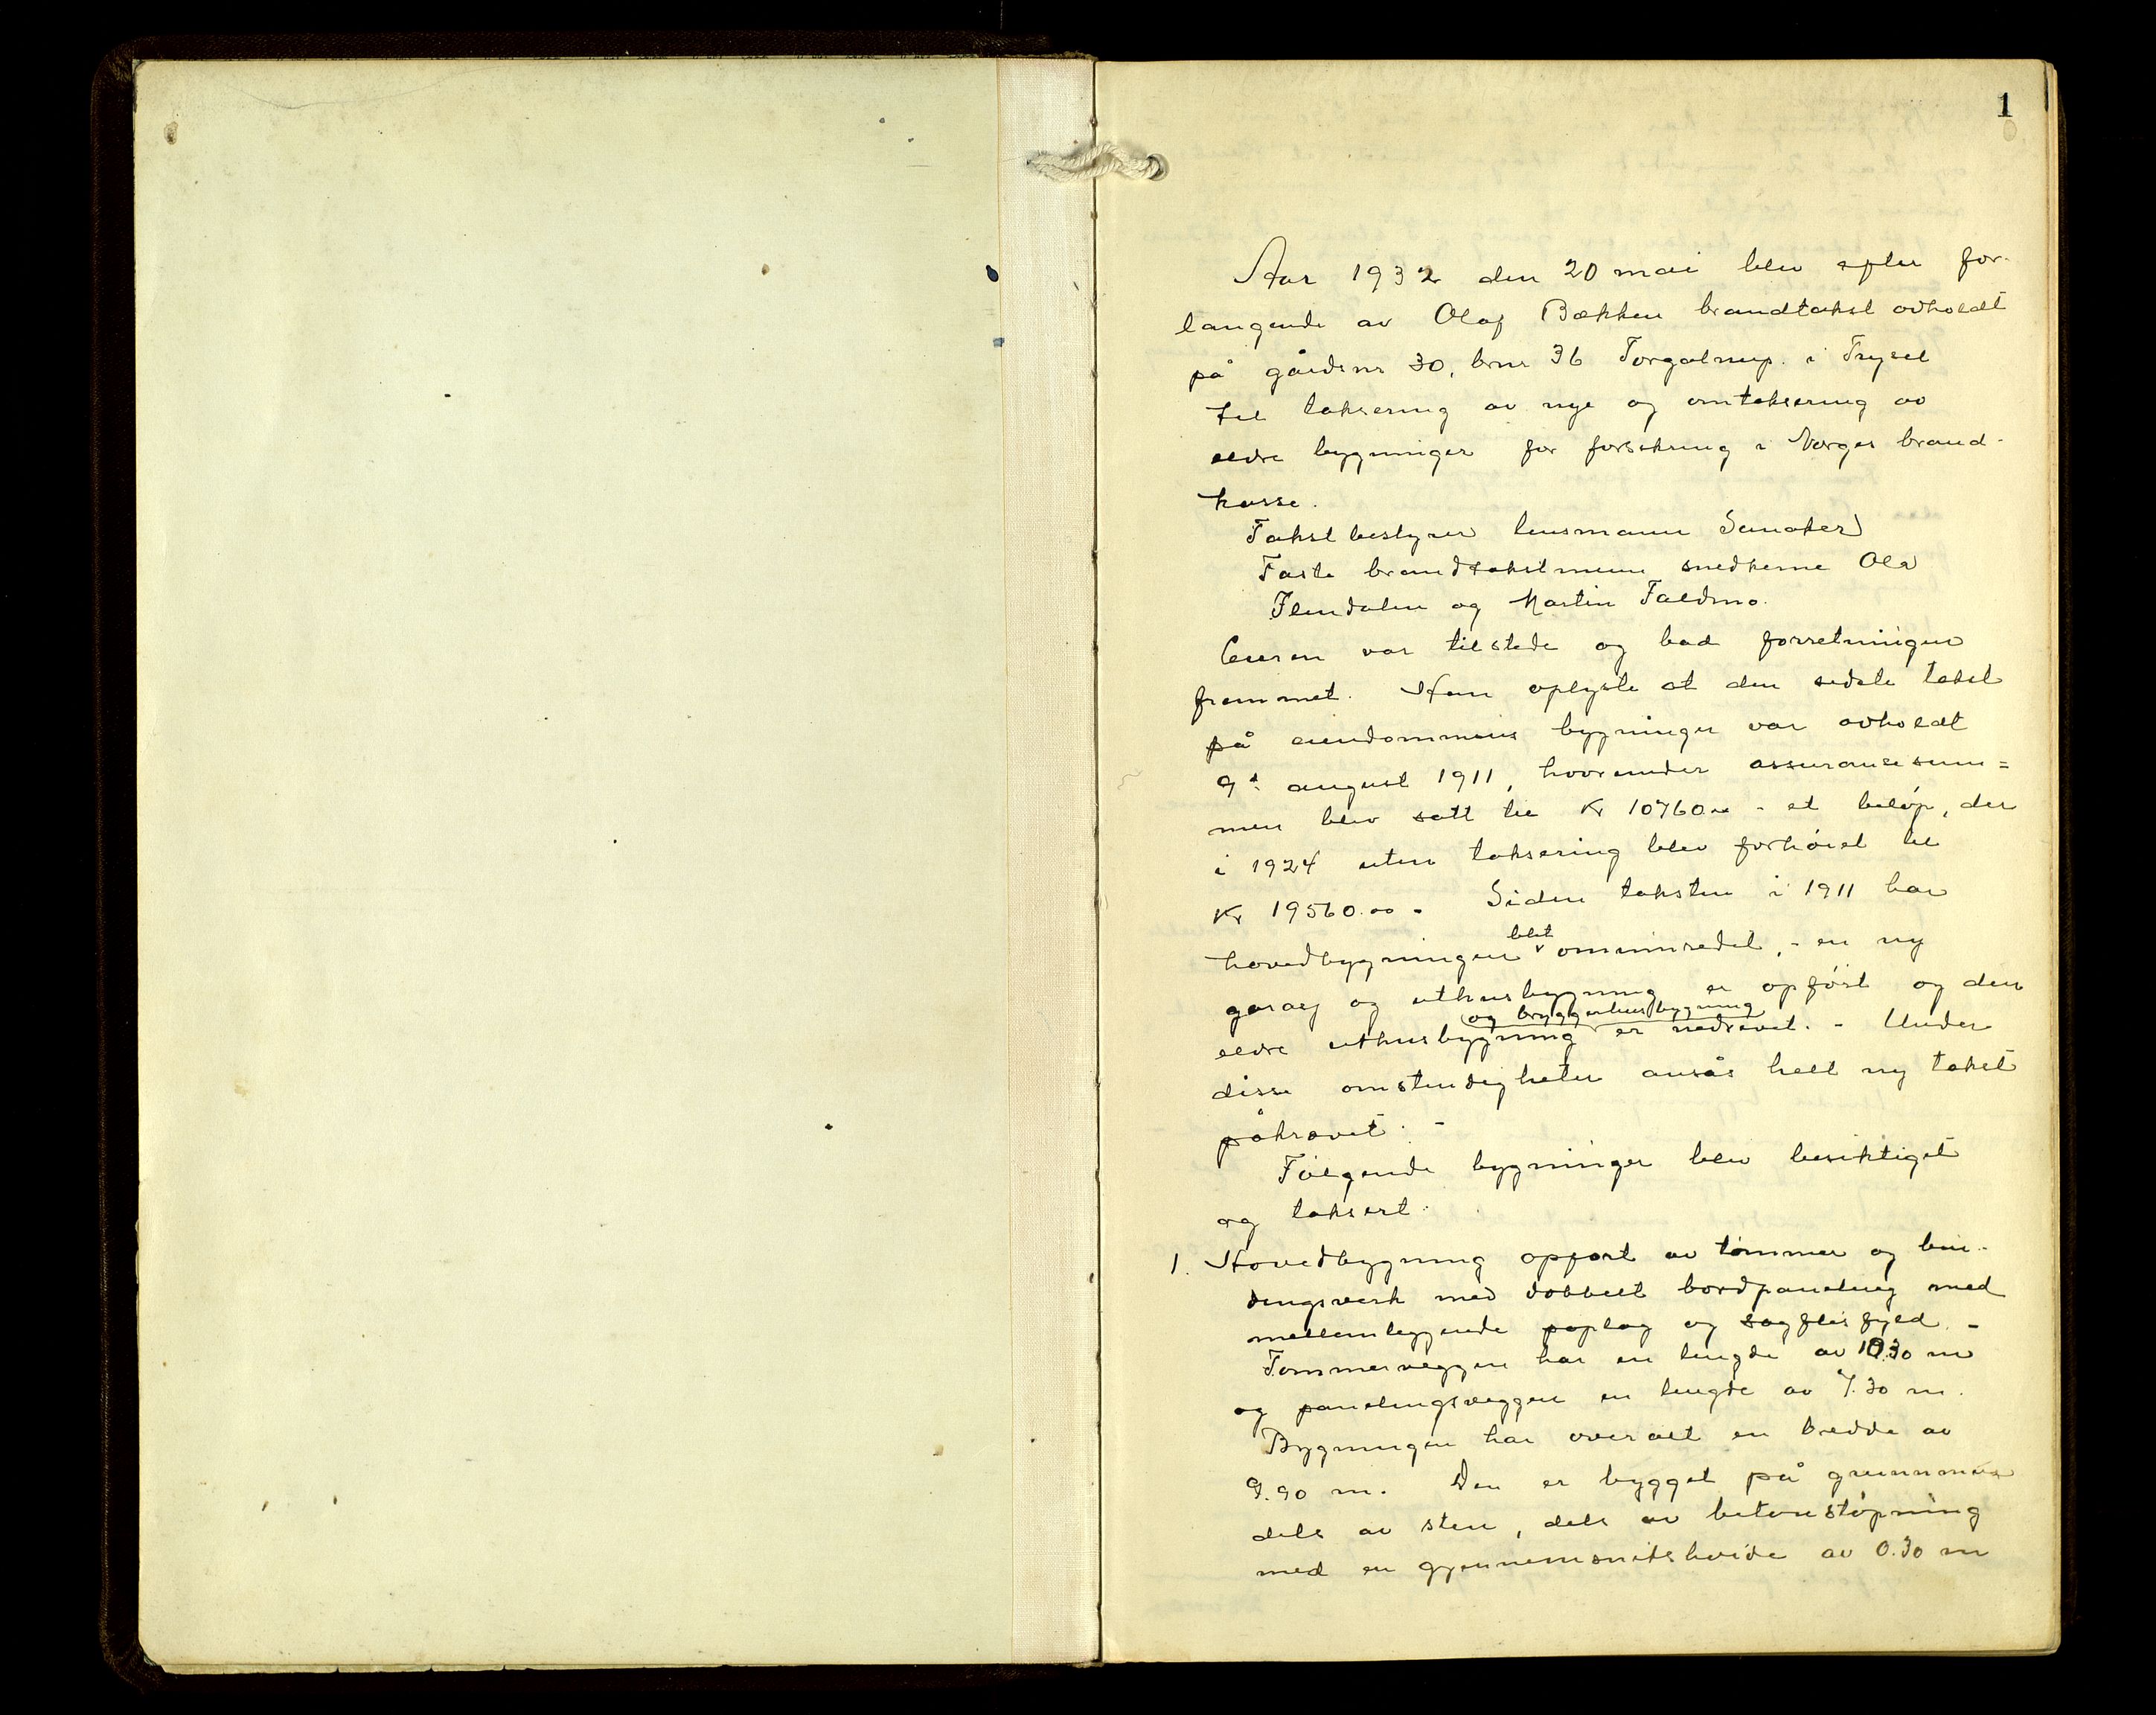 1
Aar 1932 den 20 mai blev efter for-
langende av Olaf Bækken brandtakst avholdt
på gårdsnr 30, brnr 36 Torgalnup. i Trysil
til taksering av nye og omtaksering av
eldre bygninger for forsikring i Norges brand-
kasse.
Takstbestyrer lensmann Sanaker
Faste brandtakstmenn snedkerne Ola
Flendalen og Martin Faldmo.
Eieren var tilstede og bad forretningen
fremmet. Han oplyste at den sidste takst
på eiendommens bygninger var avholdt
9d august 1911, hvorunder assuransesum=
men blev satt til Kr 10760.00 - et beløp, der
i 1924 uten taksering blev forhøiet til
Kr 19560.00 - Siden taksten i 1911 har
hovedbygningen blit ominnredet, - en ny
garasj og uthusbygning er opført og den
eldre uthusbygning (og bryggerhusbygning) er nedrevet. - Under
disse omstendigheter ansås helt ny takst
påkrævet. -
Følgende bygninger blev besiktiget
og taksert:
1. Hovedbygning opført av tømmer og bin-
dingsverk med dobbelt bordpaneling med
mellemliggende paplag og sagflisfyld. -
Tømmerveggen har en lengde av 10.30 m
og panelingsveggen en lengde av 7.30 m.
Bygningen har overalt en bredde av
9.90 m. Den er bygget på grunnmur
dels av sten, dels av betonstøpning
med en gjennemsnitshøide av 0.30 m